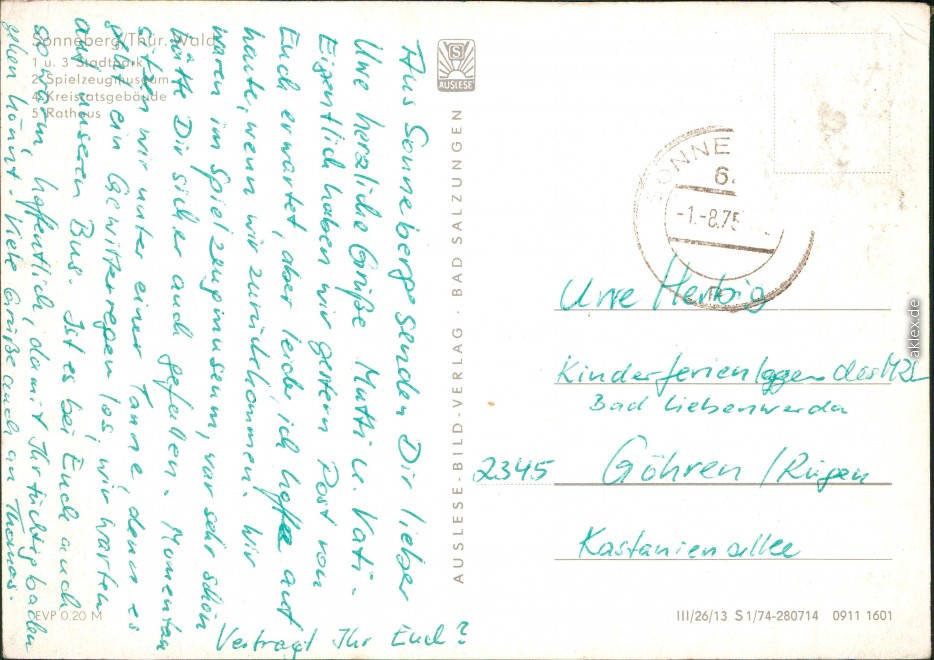 Sonneberg/Thür. Wald
1 u. 3 Stadtpark
2 Spielzeugmuseum
4 Kreisratsgebäude
5 Rathaus
Aus Sonneberg senden Dir lieber
Uwe herzliche Grüße Mutti u. Vati.
Eigentlich haben wir gestern Post von
Euch erwartet, aber leider, ich hoffe auf
heute, wenn wir zurückkommen. Wir
waren im Spielzeugmuseum, war sehr schön
hätte Dir sicher auch gefallen. Momentan
sitzen wir unter einer Tanne, denn es
geht ein Gewitterregen los, wir warten
auf unseren Bus. Ist es bei Euch auch
so warm, hoffentlich, damit Ihr tüchtig baden
gehen könnt. Viele Grüße auch an Thomas.
Vertragt Ihr Euch?
EVP 0.20 M
S
AUSLESE
AUSLESE-BILD-VERLAG · BAD SALZUNGEN
SONNE
6.
-1.-8.75
Uwe Herbig
Kinderferienlager des
Bad Liebenwerda
2345 Göhren / Rügen
Kastanienallee
III/26/13 S 1/74-280714 0911 1601
aklex.de